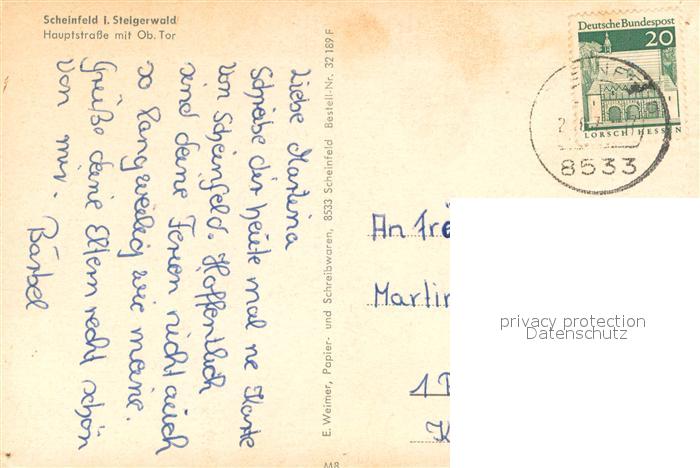 Scheinfeld i. Steigerwald
Hauptstraße mit Ob. Tor
Liebe Martina
Schreibe dir heute mal ne Karte
von Scheinfeld. Hoffentlich
sind deine Ferien nicht auch
so langweilig wie meine.
Grüße deine Eltern recht schön
von mir.
Bärbel
E. Weimer, Papier- und Schreibwaren, 8533 Scheinfeld Bestell-Nr. 32 189 F
M8
Deutsche Bundespost
20
LORSCH HESSEN
8533
An Frä
Martin
1
privacy protection
Datenschutz